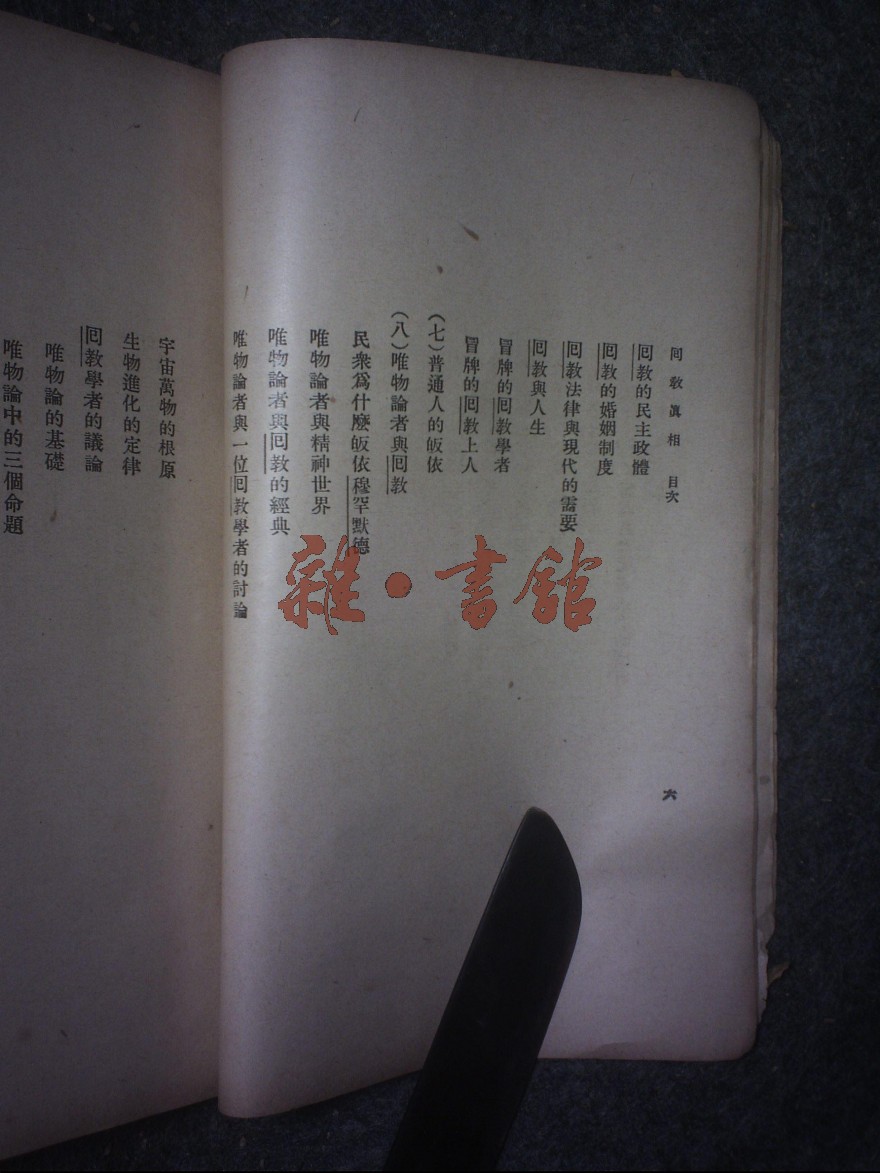 囘教眞相 目次
囘教的民主政體
囘教的婚姻制度
囘教法律與現代的需要
囘教與人生
冒牌的囘教學者
冒牌的囘教上人
(七)普通人的皈依
(八)唯物論者與囘教
民衆爲什麽皈依穆罕默德
唯物論者與精神世界
唯物論者與囘教的經典
唯物論者與一位囘教學者的討論
六
宇宙萬物的根原
生物進化的定律
囘教學者的議論
唯物論的基礎
唯物論中的三個命題
雜·書館